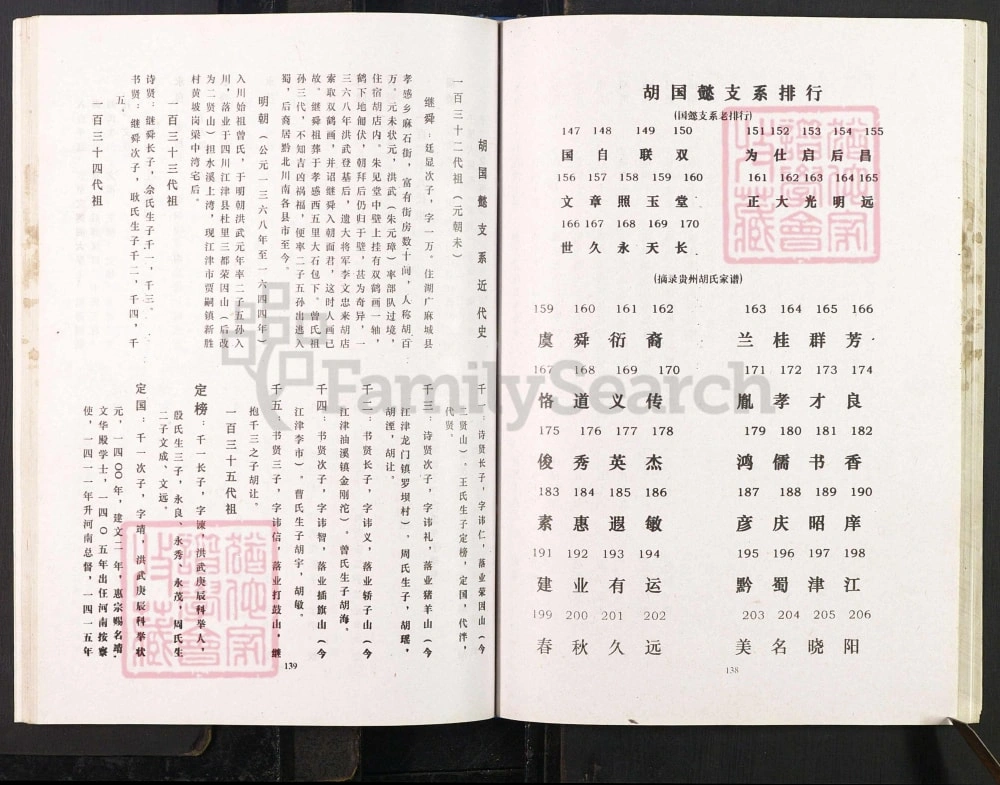 胡国懿支系排行
(国懿支系老排行)
147 148 149 150 151 152 153 154 155
国 自 联 双 为 仕 启 后 昌
156 157 158 159 160 161 162 163 164 165
文 章 照 玉 堂 正 大 光 明 远
166 167 168 169 170
世 久 永 天 长
(摘录贵州胡氏家谱)
159 160 161 162 163 164 165 166
虞 舜 衍 裔 兰 桂 群 芳
167 168 169 170 171 172 173 174
恪 道 义 传 胤 孝 才 良
175 176 177 178 179 180 181 182
俊 秀 英 杰 鸿 儒 书 香
183 184 185 186 187 188 189 190
素 惠 遐 敏 彦 庆 昭 庠
191 192 193 194 195 196 197 198
建 业 有 运 黔 蜀 津 江
199 200 201 202 203 204 205 206
春 秋 久 远 美 名 晓 阳
138
胡国懿支系近代史
一百三十二代祖(元朝末)
继舜:廷显次子,字一万。住湖广麻城县
孝感乡麻石街,富有街房数十间,人称胡百
万。元末状元,洪武(朱元璋)率部队过境,
住宿胡店内。朱见堂中壁上挂有双鹤画一轴,
鹤下地匍伏,朝拜后仍归于壁,甚为奇异,一
三六八年洪武登基后,遣大将军李文忠来胡店
索取双鹤画,并诏继舜入朝面君,这时人画已
故。继舜祖葬于孝感西五里大石包下。曾氏祖
孙三代,不知吉凶祸福,便率二子五孙出逃入
蜀,后裔居黔北川南各县市至今。
明朝(公元一三六八年至一六四四年)
入川始祖曾氏,于明朝洪武元年率二子五孙入
川,落业于四川江津县杜里三都荣因山(后改
为二贤山)担水溪上湾,现江津市贾嗣镇新胜
村黄坡岗梁中湾宅后。
一百三十三代祖
诗贤:继舜长子,佘氏生子千一,千三。
书贤:继舜次子,耿氏生子千二,千四,千
五。
一百三十四代祖
千一:诗贤长子,字讳仁,落业荣因山(今
二贤山)。王氏生子定榜,定国,代泮,
代贤。
千三:诗贤次子,字讳礼,落业猪羊山(今
江津龙门镇罗坝村)。周氏生子,胡瑶,
胡湮,胡让。
千二:书贤长子,字讳义,落业轿子山(今
江津油溪镇金刚沱)。曾氏生子胡海。
千四:书贤次子,字讳智,落业插旗山(今
江津李市)。曹氏生子胡宇,胡敏。
千五:书贤三子,字讳信,落业打鼓山,继
抱千三之子胡让。
一百三十五代祖
定榜:千一长子,字谏,洪武庚辰科举人,
殷氏生三子,永良、永秀、永茂,周氏生
二子文成、文远。
定国:千一次子,字靖,洪武庚辰科举状
元,一四〇〇年,建文二年,惠宗赐名靖,
文华殿学士,一四〇五年出任河南按察
使,一四一一年升河南总督,一四一五年
139
FamilySearch